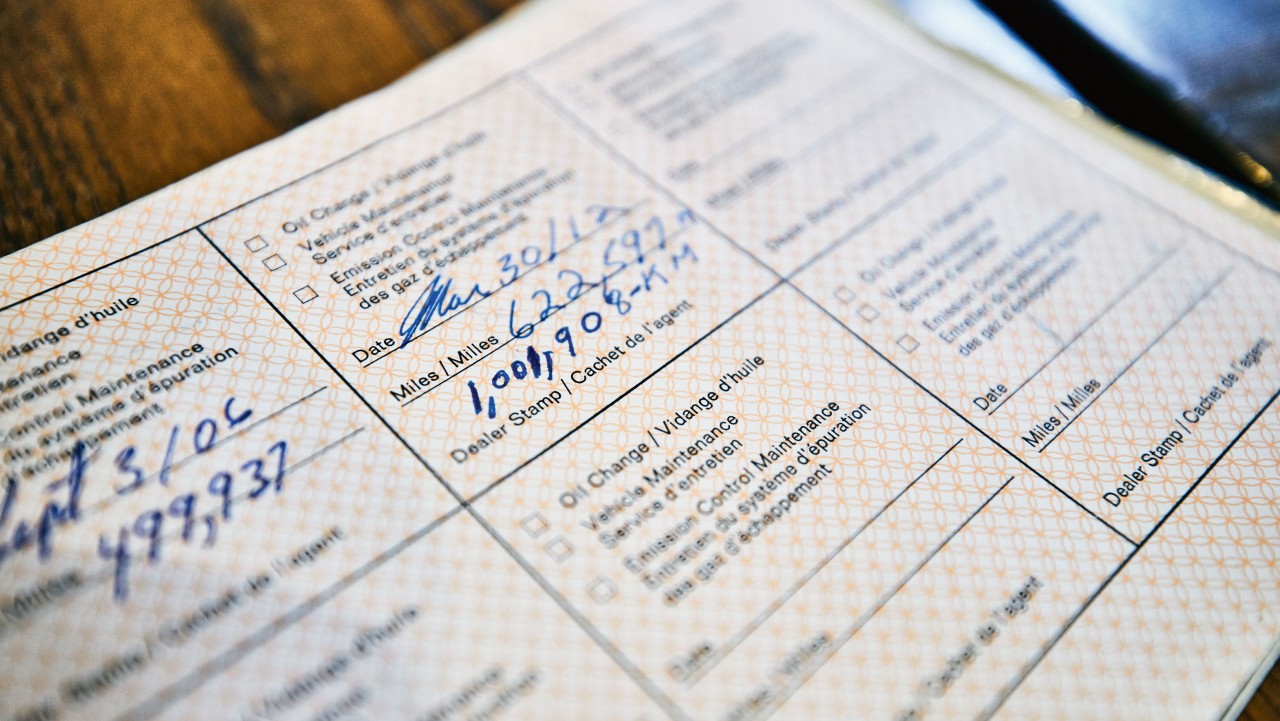 idange d'huile
tenance
ntretien
ontrol Maintenance
du système d'épuration
Sept 3/06
499,937
Cachet de l'agent
Vidange d'huile
Oil Change / Vidange d'huile
Vehicle Maintenance
Service d'entretien
Emission Control Maintenance
Entretien du système d'épuration
des gaz d'échappement
Date Mar 30/12
Miles / Milles 622,597
1,001,908-KM
Dealer Stamp / Cachet de l'agent
Oil Change / Vidange d'huile
Vehicle Maintenance
Service d'entretien
Emission Control Maintenance
Entretien du système d'épuration
des gaz d'échappement
Date
Miles / Milles
Cachet de l'agent
Oil Change / Vidange d'huile
Vehicle Maintenance
Service d'entretien
Emission Control Maintenance
Entretien du système d'épuration
des gaz d'échappement
Date
Miles / Milles
Dealer Stamp / Cachet de l'agent